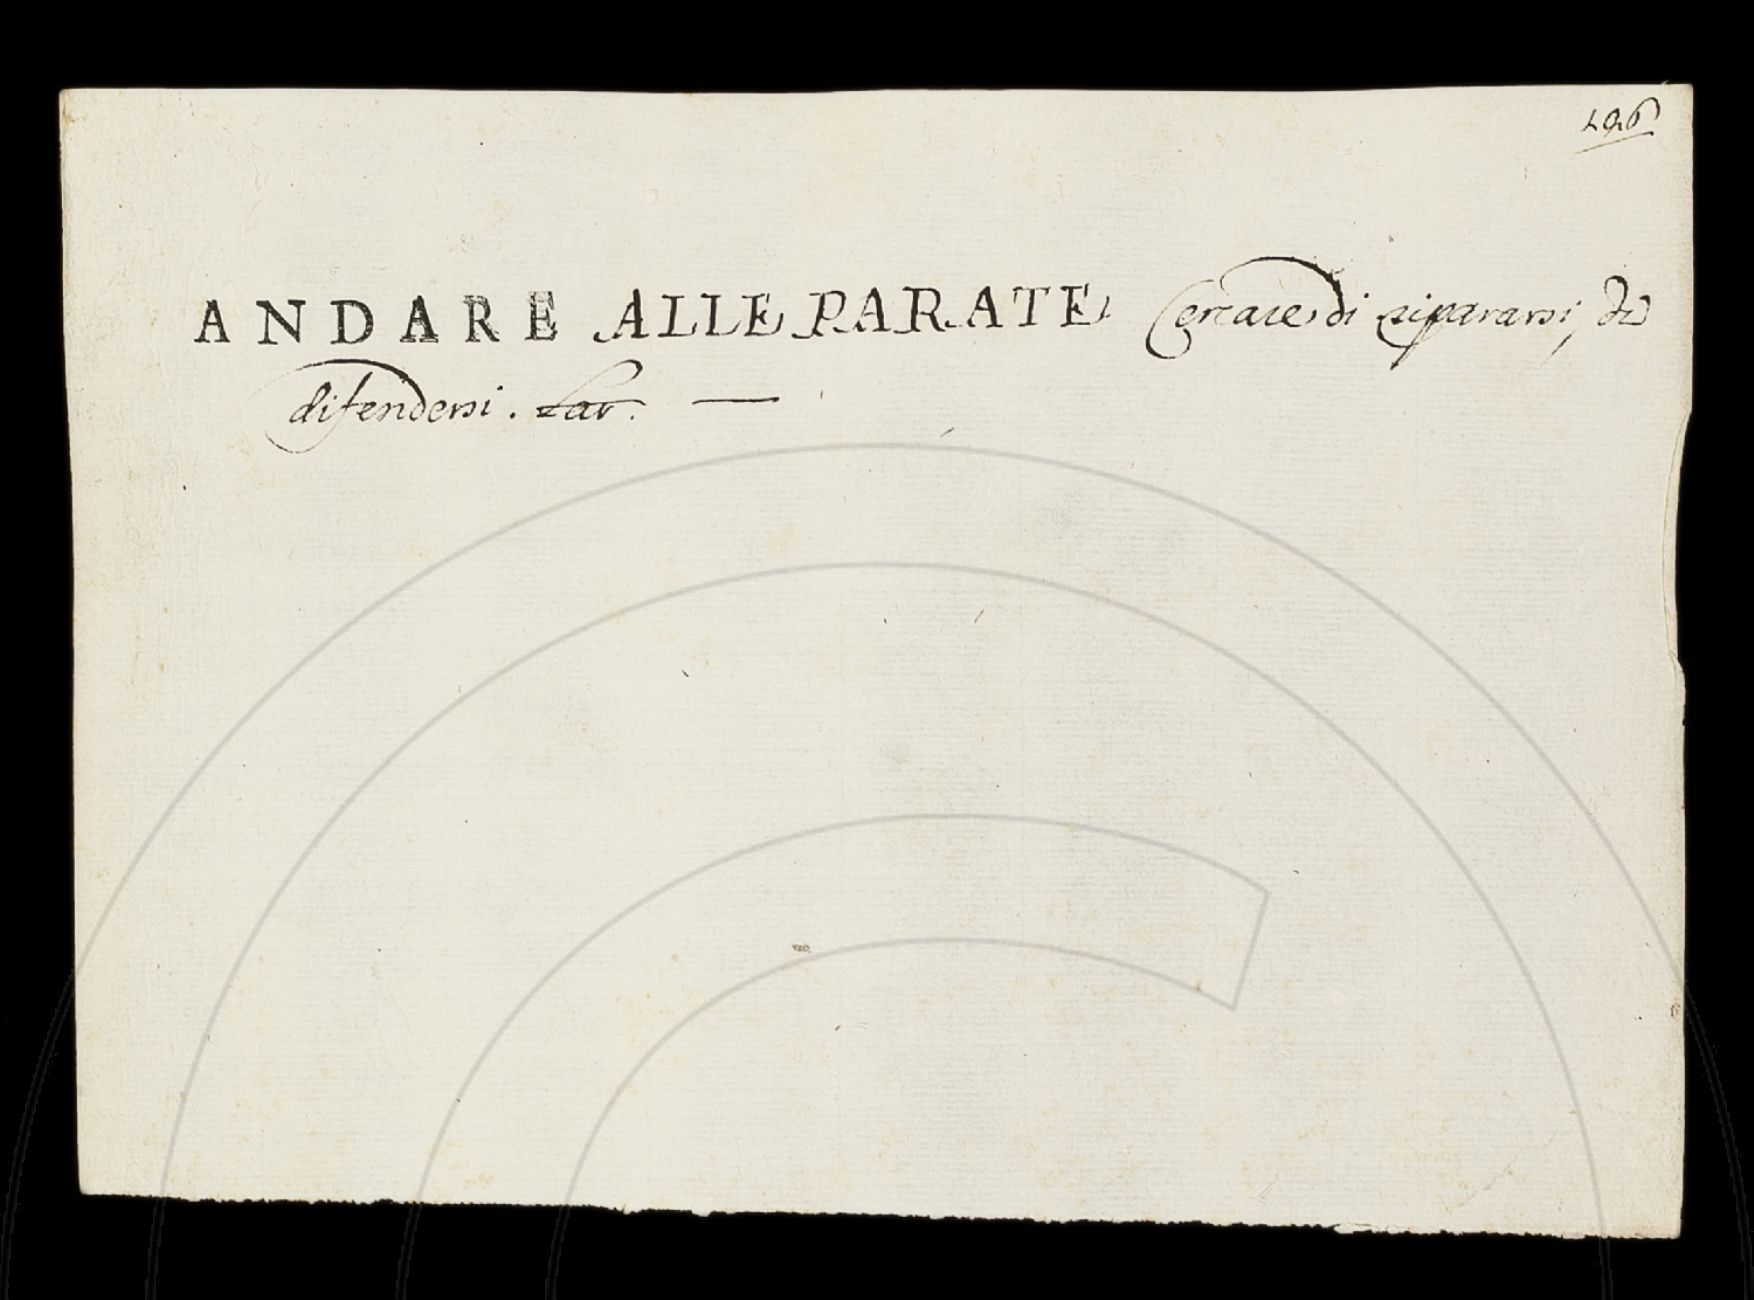 196
ANDARE ALLE PARATE Cercare di ripararsi, &
difendersi. Lat. —